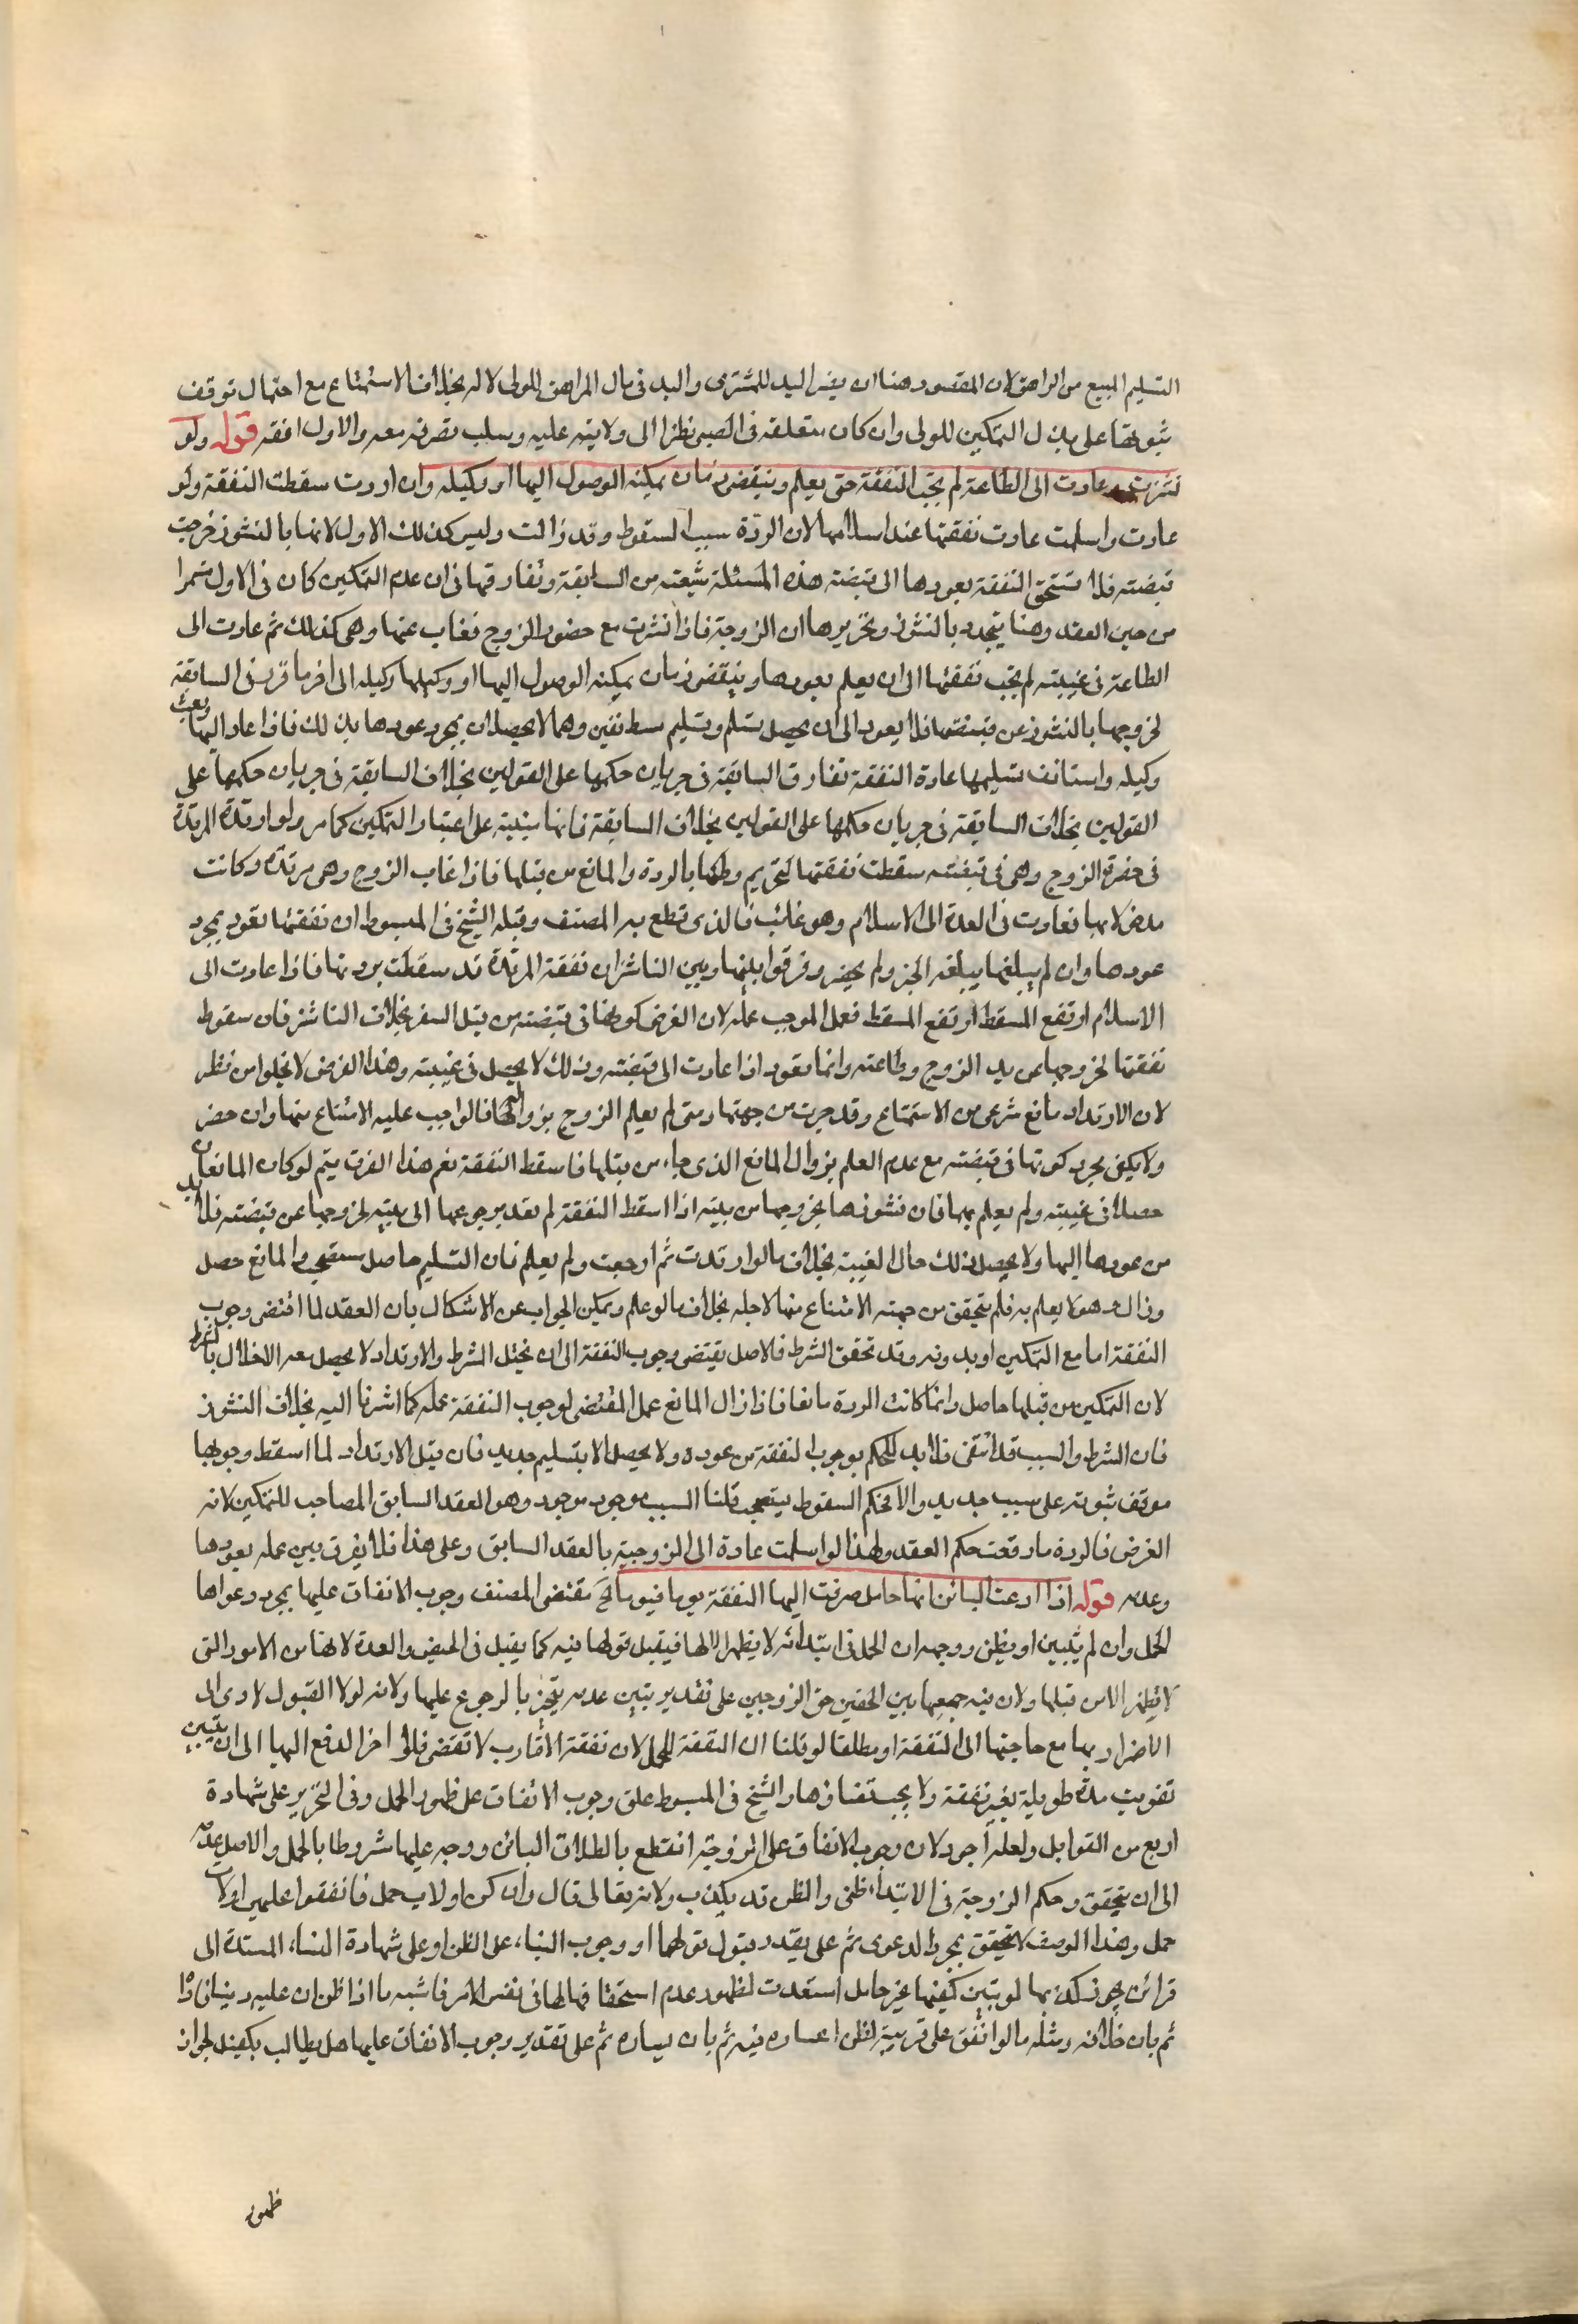 التسليم المبيع من المراهق لان المقصود هنا ان يغير اليد للمشترى واليد فى مال المراهق للولى لا له بخلاف الاستمتاع مع احتمال توقف
ثبوتها على بذل التمكين للولى وان كان متعلقه فى الصبى نظرا الى ولايته عليه وسلب تصرفه معه والاول افقه قوله ولو
نشزت وعادت الى الطاعة لم تجب النفقة حتى يعلم وينقضى زمان يمكنه الوصول اليها او وكيله وان ارتدت سقطت النفقة ولو
عادت واسلمت عادت نفقتها عند اسلامها لان الردة سبب السقوط وقد زالت وليس كذلك الاول لانها بالنشوز خرجت
قبضته فلا تستحق النفقة بعودها الى قبضته هذه المسئلة شيعته من السابقة وتفارقها فى ان عدم التمكين كان فى الاول مستمرا
من حين العقد وهنا يتجدد بالنشوز وتحريرها ان الزوجة فاذا نشزت مع حضور الزوج فغاب عنها وهى كذلك ثم عادت الى
الطاعة فى غيبته لم تجب نفقتها الى ان يعلم بعودها وينقضى زمان يمكنه الوصول اليها او وكيلها وكيله الى اخر ما قرر فى السابقة
لخروجها بالنشوز عن قبضتها فلا يعود الى ان يحصل تسلم وتسليم مستانفين وهما لا يحصلان بمجرد عودها بذلك فاذا عاد اليها وبعث
وكيله واستانف تسليمها عادة النفقة تفارق السابقة فى جريان حكمها على القولين بخلاف السابقة فى جريان حكمها على
القولين بخلاف السابقة فى جريان حكمها على القولين بخلاف السابقة فانها مبنية على اعتبار التمكين كما مر ولو ارتدة المرتدة
فى حضرة الزوج وهى فى قبضته سقطت نفقتها لتحريم وطئها بالردة والمانع من قبلها فاذا غاب الزوج وهى مرتدة وكانت
مدخولا بها فعادت فى العدة الى الاسلام وهو غائب فالذى قطع به المصنف وقبله الشيخ فى المبسوط ان نفقتها تعود بمجرد
عودها وان لم يبلغها يبلغه الخبر ولم يحضر وفرقوا بينها وبين الناشز ان نفقة المرتدة قد سقطت بردتها فاذا عادت الى
الاسلام ارتفع المسقط ارتفع المسقط فعمل الموجب عمله لان الفرض كونها فى قبضته من قبل السفر بخلاف الناشز فان سقوط
نفقتها لخروجها عن يد الزوج وطاعته وانما تعود اذا عادت الى قبضته وذلك لا يحصل فى غيبته وهذا الفرض لا يخلوا من نظر
لان الارتداد مانع شرعى من الاستمتاع وقد جرت من جهتها ومتى لم يعلم الزوج بزوالها فالواجب عليه الامتناع منها وان حضر
ولا يكفى مجرد كونها فى قبضته مع عدم العلم بزوال المانع الذى جاء من قبلها فاسقط النفقة نعم هذا الفرق يتم لو كان المانعان
حصلا فى غيبته ولم يعلم بهما فان نشوزها بخروجها من بيته اذا اسقط النفقة لم تعد برجوعها الى بيته لخروجها عن قبضته فلا بد
من عودها اليها ولا يحصل ذلك حال الغيبة بخلاف ما لو ارتدت ثم ارجعت ولم يعلم فان التسليم حاصل مستصحب والمانع حصل
وزال وهو لا يعلم به فلم يتحقق من جهته الامتناع منها لاجله بخلاف ما لو علم ويمكن الجواب عن الاشكال بان العقد لما اقتضى وجوب
النفقة اما مع التمكين او بدونه وقد تحقق الشرط فالاصل يقتضى وجوب النفقة الى ان يختل الشرط والارتداد لا يحصل معه الاخلال بالشرط
لان التمكين من قبلها حاصل وانما كانت الردة مانعا فاذا زال المانع عمل المقتضى لوجوب النفقة عمله كما اشرنا اليه بخلاف النشوز
فان الشرط والسبب قد انتفى فلا بد للحكم بوجوب النفقة من عوده ولا يحصل الا بتسليم جديد فان قيل الارتداد لما اسقط وجوبها
موقف ثبوته على سبب جديد والا فحكم السقوط يستصحب قلنا السبب موجود موجود وهو العقد السابق المصاحب للتمكين لانه
الفرض فالردة ما رفعت حكم العقد ولهذا لو اسلمت عادة الى الزوجية بالعقد السابق وعلى هذا فلا يفرق بين عمله بعودها
وعدمه قوله اذا ادعت البائن انها حامل صرفت اليها النفقة يوما فيوما الخ مقتضى المصنف وجوب الانفاق عليها بمجرد دعواها
الحمل وان لم يتبين او يظن ووجهه ان الحمل فى ابتدائه لا يظهر الا لها فيقبل قولها فيه كما يقبل فى الحيض والعدة لانها من الامور التى
لا تظهر الا من قبلها ولان فيه جمعها بين الحقين حق الزوجين على تقدير تبين عدمه يتخير بالرجوع عليها ولانه لولا القبول لادى الى
الاضرار بها مع حاجتها الى النفقة او مطلقا لو قلنا ان النفقة للحمل لان نفقة الاقارب لا تقضى فلو اخر الدفع اليها الى ان يتبين
تفويت مدة طويلة بغير نفقة ولا يجب قضاؤها والشيخ فى المبسوط علق وجوب الانفاق على ظهور الحمل وفى التحرير على شهادة
اربع من القوابل ولعله اجود لان وجوب الانفاق على الزوجية انقطع بالطلاق البائن ووجب عليها مشروطا بالحمل والاصل عدمه
الى ان يتحقق وحكم الزوجة فى الابتداء ظنى والظن قد يكذب ولانه يقالى قال وان كن اولات حمل فانفقوا عليهن اولات
حمل وهذا الوصف لا يتحقق بمجرد الدعوى ثم على تقدير قبول قولها او وجوب البناء على الظن او على شهادة النساء المستندة الى
قرائن يجوز كذبها لو تبين كونها غير حامل استعدت لظهور عدم استحقاقها لها فى نفس الامر فاشبه ما اذا ظن ان عليه دينا فاداه
ثم بان خلافه ومثله ما لو انفق على قريبه لظن اعساره فيه ثم بان يساره ثم على تقدير وجوب الانفاق عليها هل يطالب بكفيل لجواز
ظهور